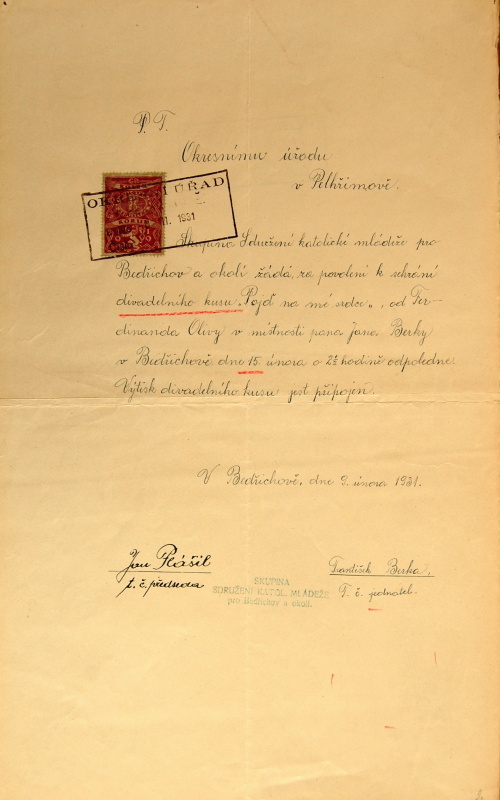 P. T.
Okresnímu úřadu
v Pelhřimově.
OKRESNÍ ÚŘAD
1931
Skupina Sdružení katolické mládeže pro
Bedřichov a okolí žádá, za povolení k sehrání
divadelního kusu „Pojď na mé srdce„, od Fer-
dinanda Olivy v místnosti pana Jana Berky
v Bedřichově dne 15. února o 2½ hodině odpoledne.
Výtisk divadelního kusu jest připojen.
V Bedřichově, dne 9. února 1931.
Jan Plášil
t. č. předseda
František Berka,
T. č. jednatel.
SKUPINA
SDRUŽENÍ KATOL. MLÁDEŽE
pro Bedřichov a okolí.